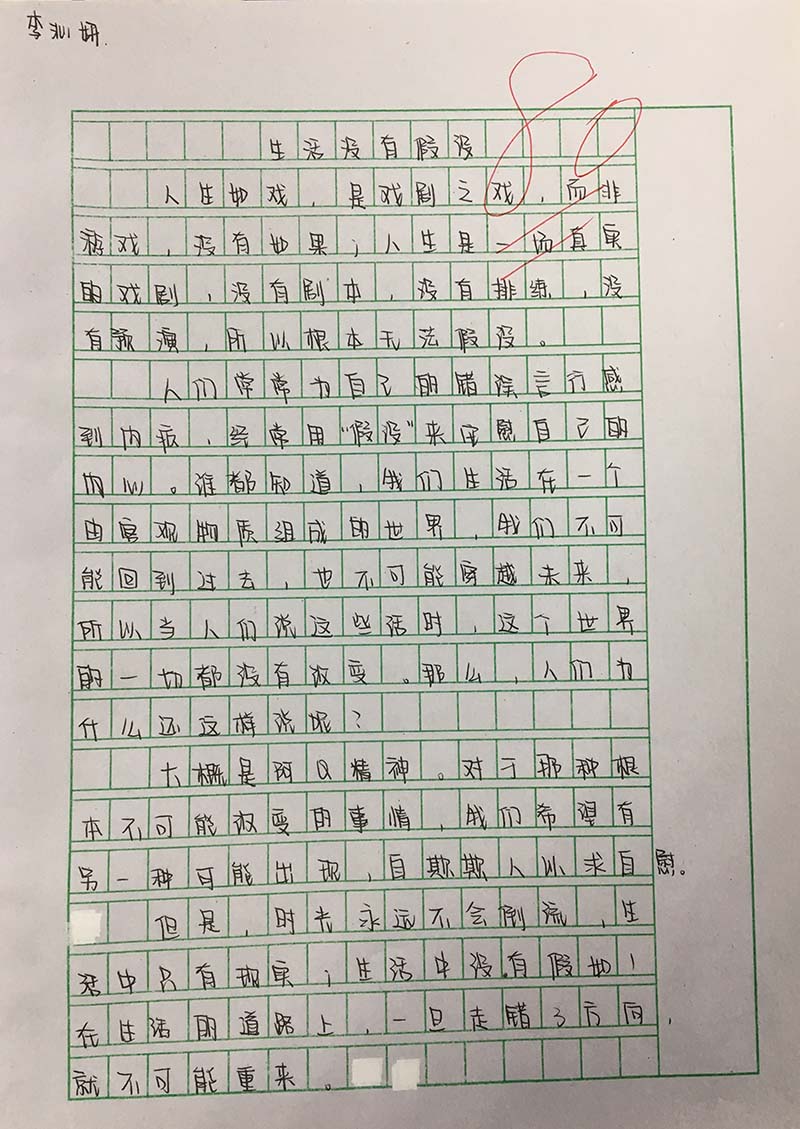 李沁妍
80
生活没有假设
人生如戏，是戏剧之戏，而非
游戏，没有如果；人生是一场真实
的戏剧，没有剧本，没有排练，没
有预演，所以根本无法假设。
人们常常为自己的错误言行感
到内疚，经常用“假设”来安慰自己的
内心。谁都知道，我们生活在一个
由客观物质组成的世界，我们不可
能回到过去，也不可能穿越未来，
所以当人们说这些话时，这个世界
的一切都没有改变。那么，人们为
什么还这样说呢？
大概是阿Q精神。对于那种根
本不可能改变的事情，我们希望有
另一种可能出现，自欺欺人以求自慰。
但是，时光永远不会倒流，生
活中只有现实；生活中没有假如！
在生活的道路上，一旦走错了方向，
就不可能重来。